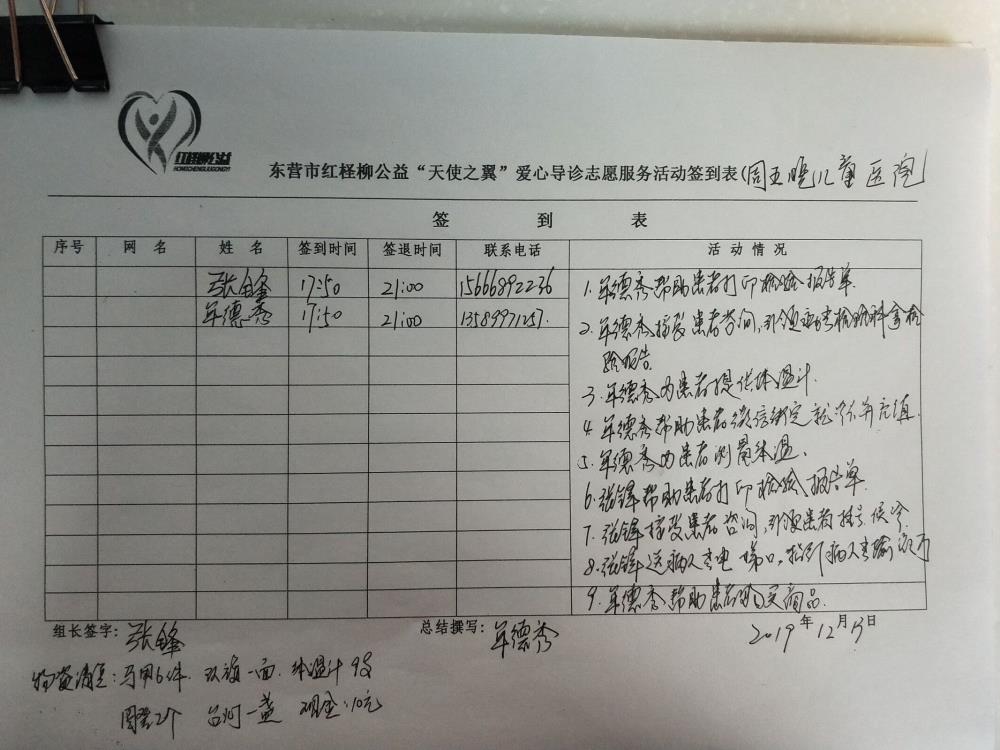 红柽柳公益
HONGCHENGLIUGONGYI
东营市红柽柳公益“天使之翼”爱心导诊志愿服务活动签到表(周五晚儿童医院)
签 到 表
序号 网 名 姓 名 签到时间 签退时间 联系电话 活 动 情 况
张锋 17:50 21:00 15666892236
单德秀 17:50 21:00 13589971257.
1. 单德秀帮助患者打印检验报告单.
2. 单德秀接受患者咨询,引领患者去检验科拿检
验报告.
3. 单德秀为患者提供体温计.
4. 单德秀帮助患者微信绑定就诊卡并充值.
5. 单德秀为患者测量体温.
6. 张锋帮助患者打印检验报告单.
7. 张锋接受患者咨询,引领患者挂号候诊
8. 张锋送病人去电梯口,指引病人去输液厅
9. 单德秀帮助患者购买商品.
组长签字: 张锋 总结撰写: 单德秀 2019年12月13日
物资清点: 马甲6件. 队旗一面. 体温计9支
图章2个 台灯一盏 现金:10元